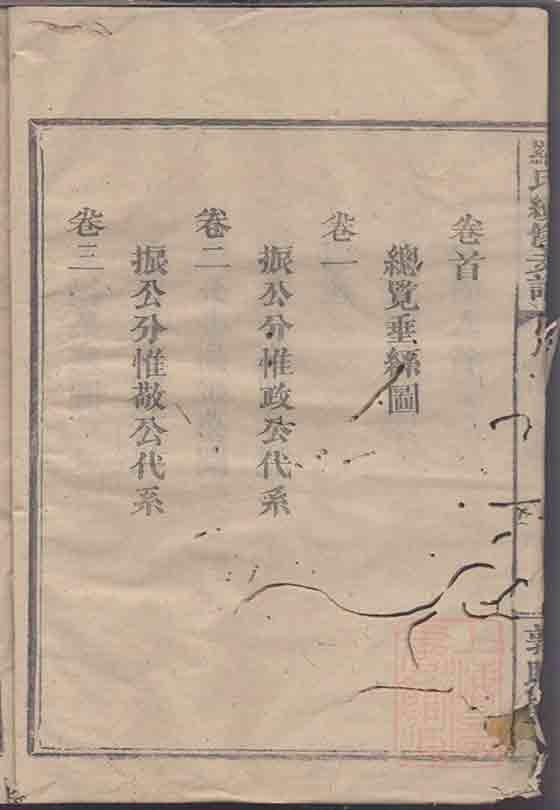 羅氏續修
卷首
總覽垂絲圖
卷一
振公分惟政公代系
卷二
振公分惟敬公代系
卷三